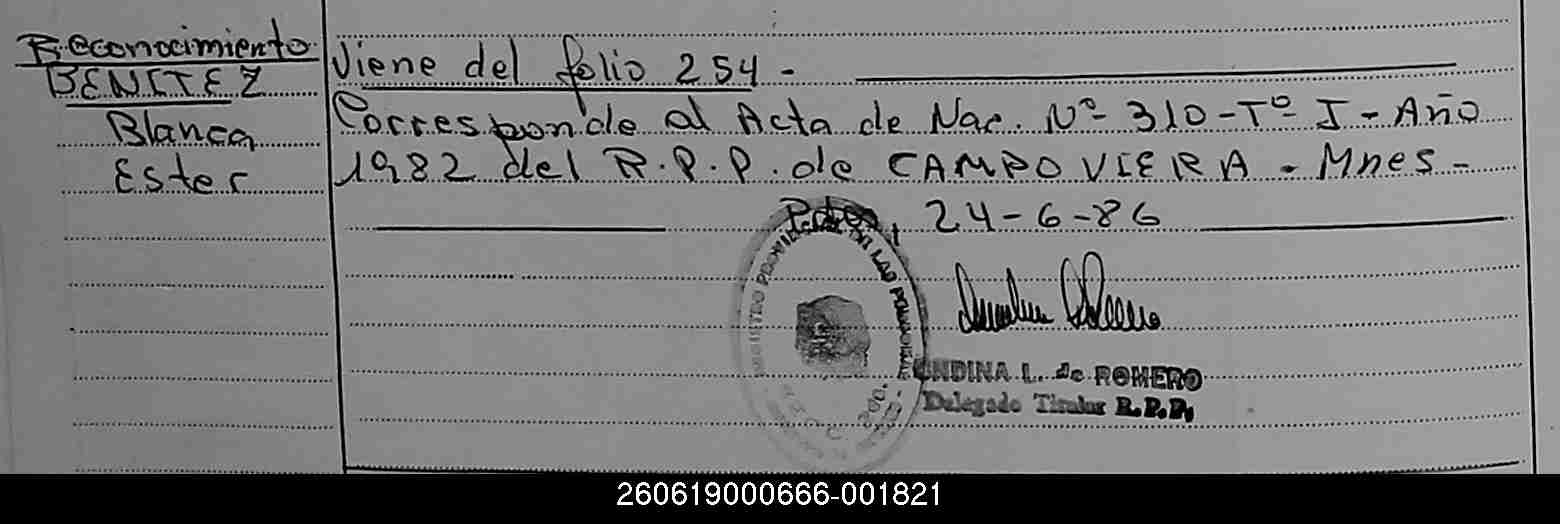 Reconocimiento
BENITEZ
Blanca
Ester
Viene del folio 254 -
Corresponde al Acta de Nac. Nº 310 - Tº I - Año
1982 del R.P.P. de CAMPO VIERA - Mnes -
Pdas, 24-6-86
REGISTRO PROVINCIAL DE LAS PERSONAS
UNDINA L. de ROMERO
Delegado Titular R.P.P.
260619000666-001821